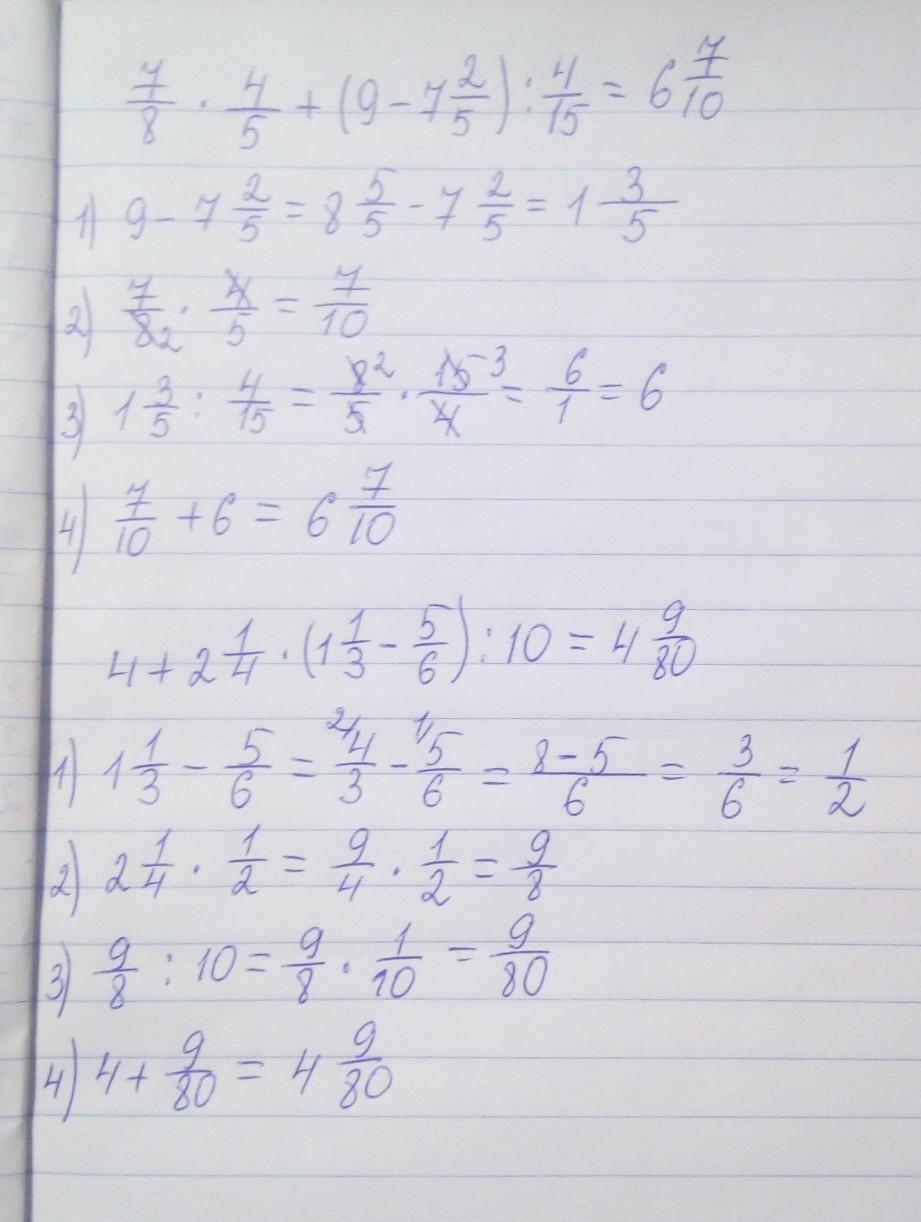 7/8 · 4/5 + (9 - 7 2/5) : 4/15 = 6 7/10
1) 9 - 7 2/5 = 8 5/5 - 7 2/5 = 1 3/5
2) 7/8 2 · 4/5 = 7/10
3) 1 3/5 : 4/15 = 8 2/5 · 15 3/4 = 6/1 = 6
4) 7/10 + 6 = 6 7/10
4 + 2 1/4 · (1 1/3 - 5/6) : 10 = 4 9/80
1) 1 1/3 - 5/6 = 2/ 4/3 - 1/ 5/6 = 8-5/6 = 3/6 = 1/2
2) 2 1/4 · 1/2 = 9/4 · 1/2 = 9/8
3) 9/8 : 10 = 9/8 · 1/10 = 9/80
4) 4 + 9/80 = 4 9/80